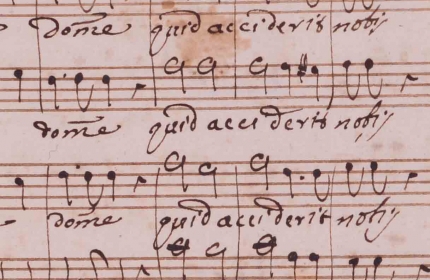 dom̄e quid acciderit nobis
dom̄e quid acciderit nobis
dom̄e quid acciderit nobis